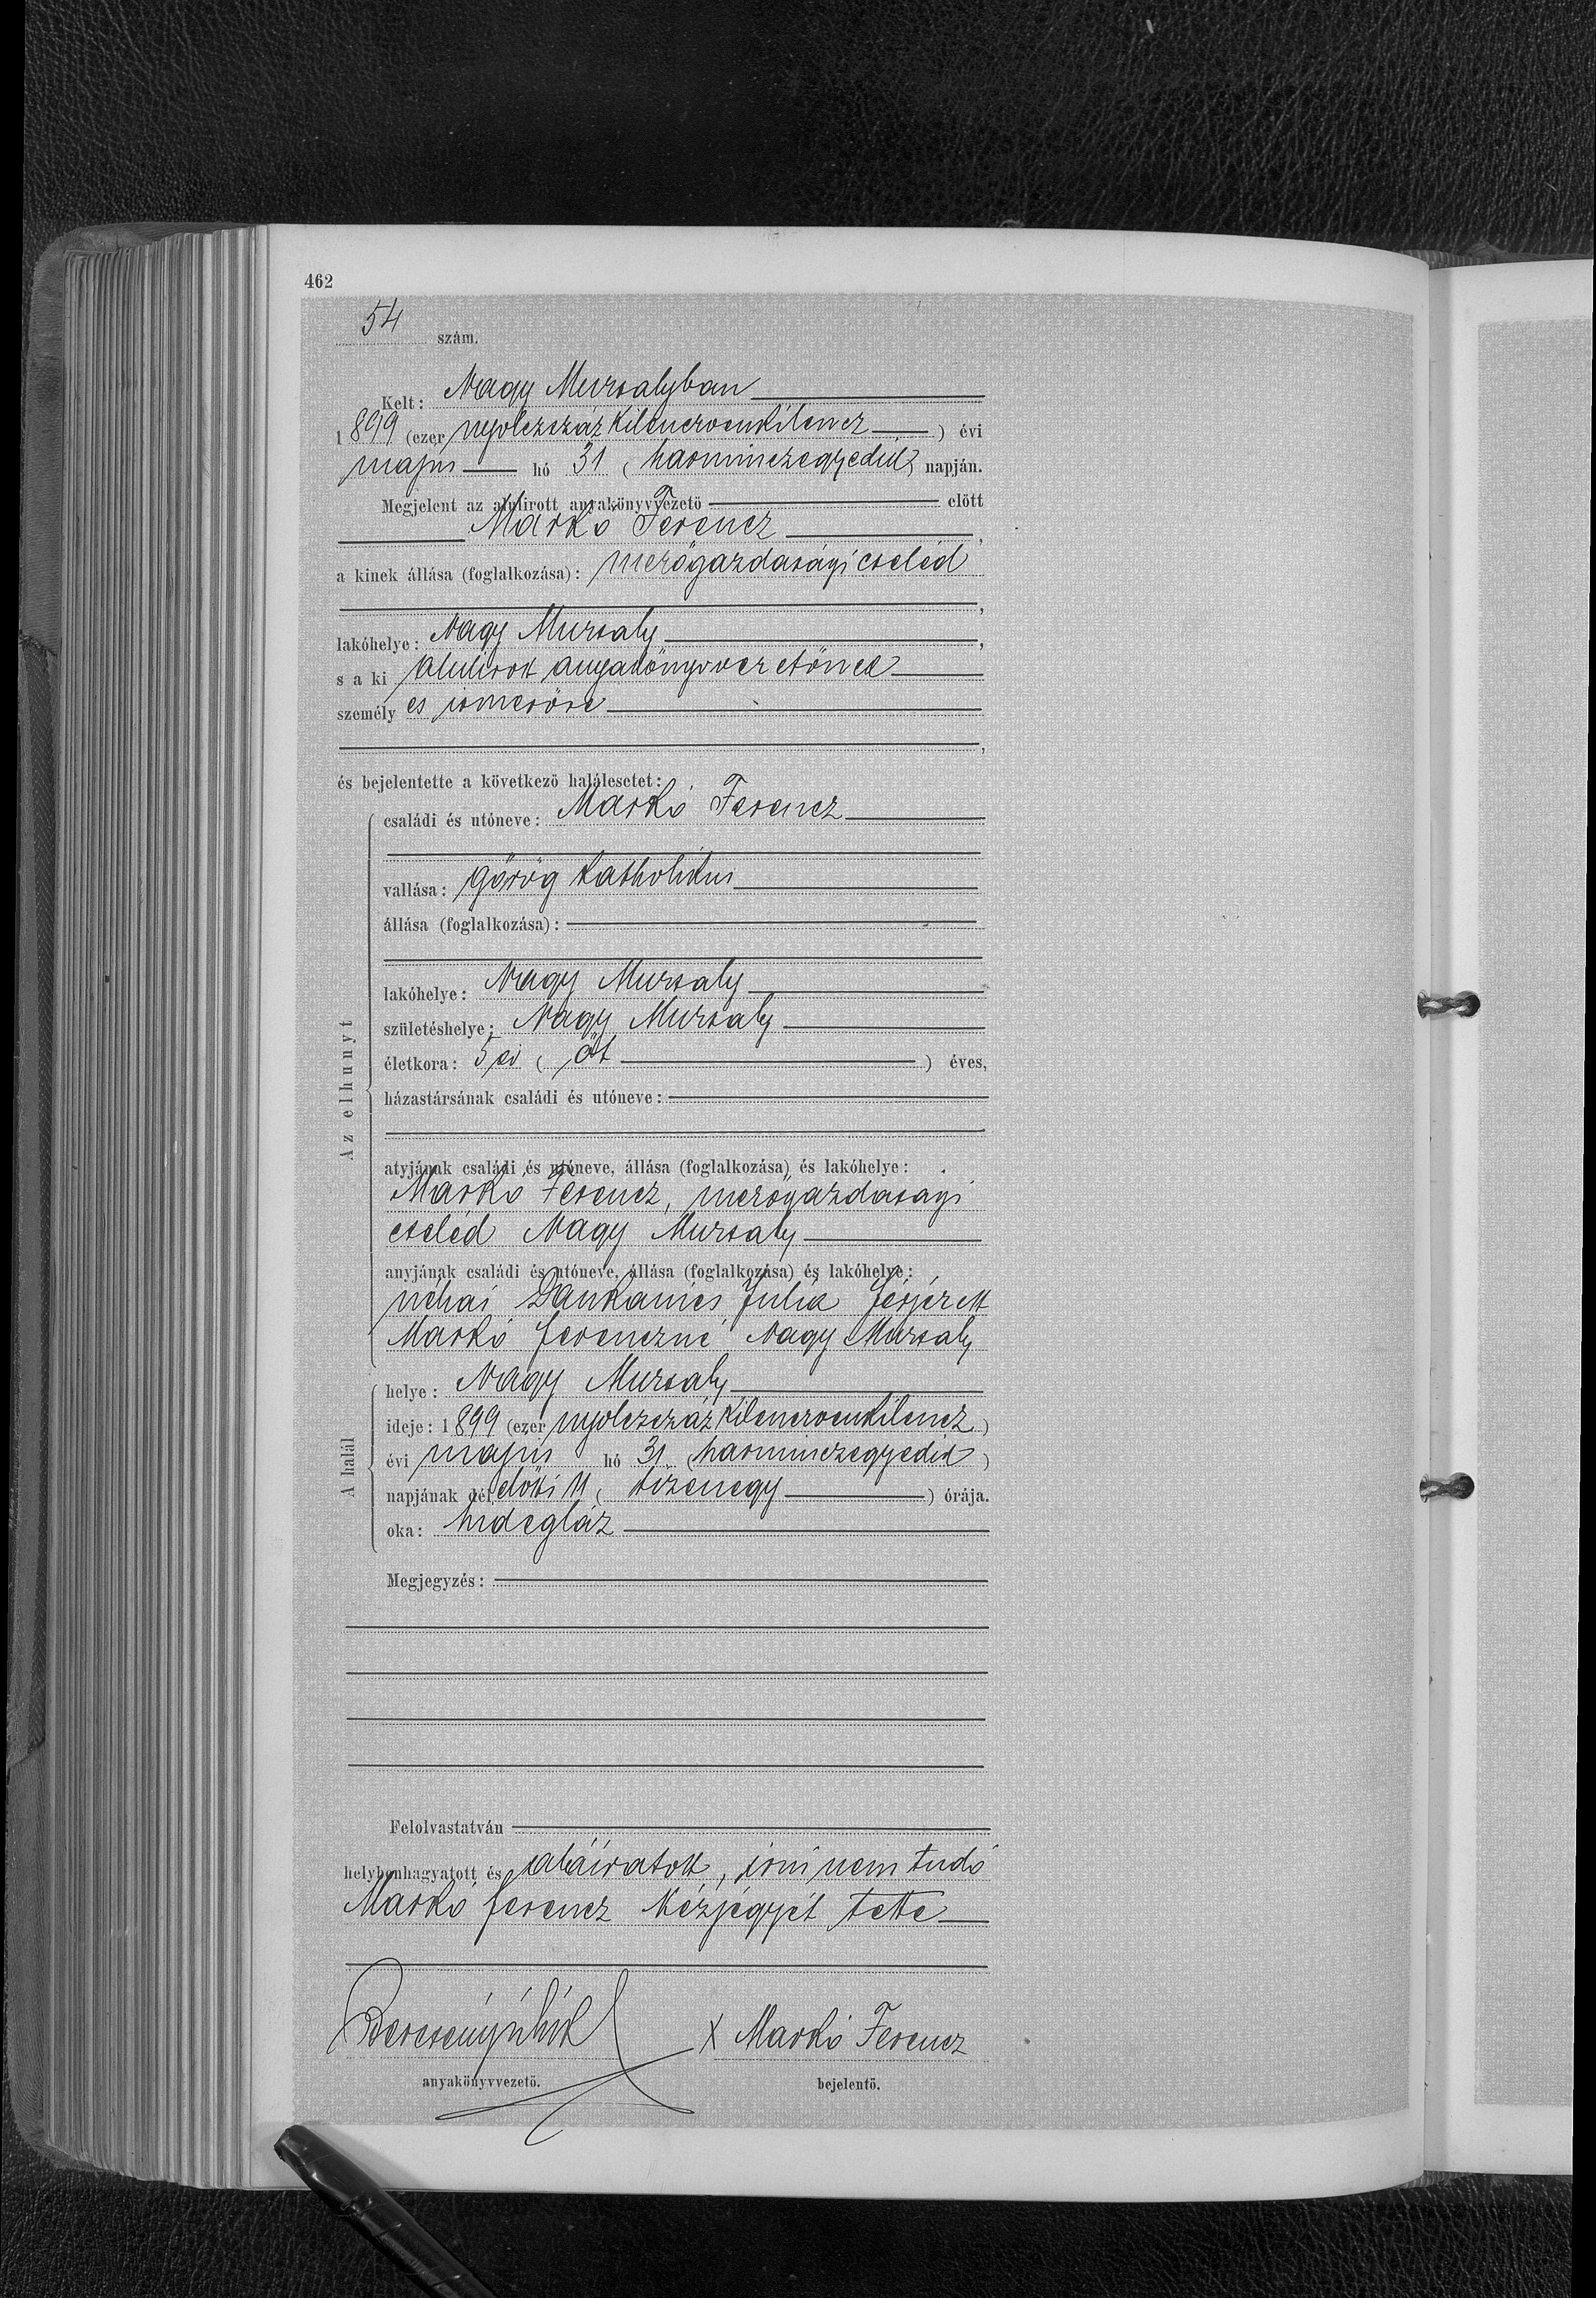 462
54 szám.
Kelt: Nagy Muzsalyban
1899 (ezer nyolczszáz kilenczvenkilencz) évi
május hó 31 (harminczegyedik) napján.
Megjelent az alulirott anyakönyvvezető előtt
Markó Ferencz,
a kinek állása (foglalkozása): mezőgazdasági cseléd
,
lakóhelye: Nagy Muzsaly,
s a ki alulirott anyakönyvvezetőnek
személyes ismerőse
,
és bejelentette a következő halálesetet:
Az elhunyt
családi és utóneve: Markó Ferencz
vallása: görög katholikus
állása (foglalkozása):
lakóhelye: Nagy Muzsaly
születéshelye: Nagy Muzsaly
életkora: 5 évi (öt) éves,
házastársának családi és utóneve:
atyjának családi és utóneve, állása (foglalkozása) és lakóhelye:
Markó Ferencz, mezőgazdasagi
cseléd Nagy Muzsaly
anyjának családi és utóneve, állása (foglalkozása) és lakóhelye:
néhai Dankanics Julia férjezett
Markó Ferenczné Nagy Muzsaly
A halál
helye: Nagy Muzsaly
ideje: 1899 (ezer nyolczszáz kilenczvenkilencz)
évi május hó 31. (harminczegyedik)
napjának délelőtti 11 (tizenegy) órája.
oka: hidegláz
Megjegyzés:
Felolvastatván
helybenhagyatott és aláiratott, irni nem tudó
Markó Ferencz kézjegyét tette
X Markó Ferencz
anyakönyvvezető. bejelentő.